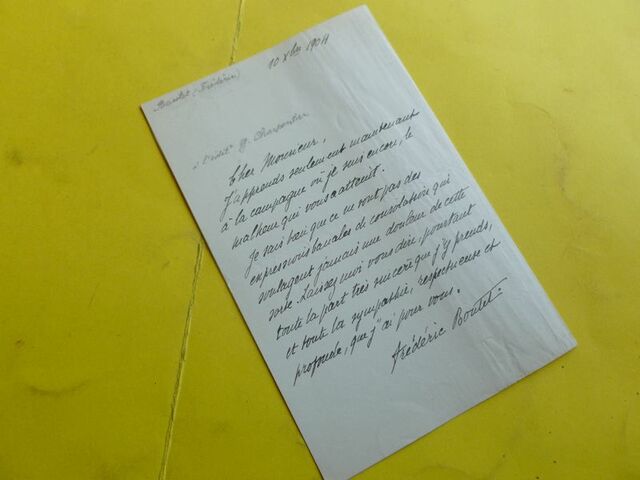 Boutet (Frédéric)
10 Xbre 1904
à l'édit. G. Charpentier
Cher Monsieur,
J'apprends seulement maintenant
à la campagne où je suis encore, le
malheur qui vous a atteint.
Je sais bien que ce ne sont pas des
expressions banales de consolation qui
soulagent jamais une douleur de cette
sorte. Laissez moi vous dire, pourtant
toute la part très sincère que j'y prends,
et toute la sympathie, respectueuse et
profonde, que j'ai pour vous.
Frédéric Boutet